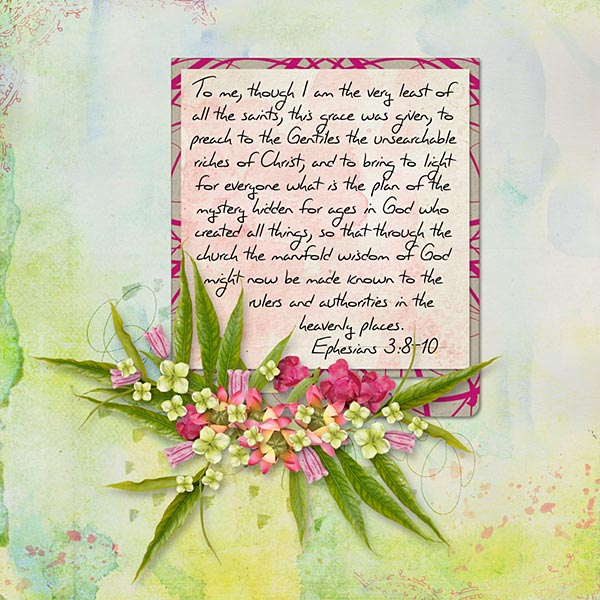 To me, though I am the very least of
all the saints, this grace was given, to
preach to the Gentiles the unsearchable
riches of Christ, and to bring to light
for everyone what is the plan of the
mystery hidden for ages in God who
created all things, so that through the
church the manifold wisdom of God
might now be made known to the
rulers and authorities in the
heavenly places.
Ephesians 3:8-10